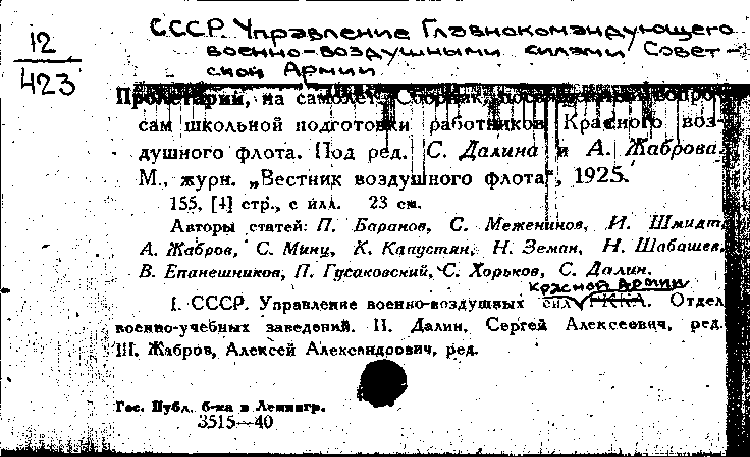 12
423
СССР. Управление Главнокомандующего
военно-воздушными силами Совет-
ской Армии
Пролетарий, на самолет. Сборник, посвященный вопро-
сам школьной подготовки работников Красного воз-
душного флота. Под ред. С. Далина и А. Жаброва.
М., журн. „Вестник воздушного флота", 1925.
155, [4] стр., с илл. 23 см.
Авторы статей: П. Баранов, С. Меженинов, И. Шмидт,
А. Жабров, С. Минц, К. Капустян, Н. Земан, Н. Шабашев,
В. Епанешников, П. Гусаковский, С. Хорьков, С. Далин.
Красной Армии
I. СССР. Управление военно-воздушных сил РККА. Отдел
военно-учебных заведений. II. Далин, Сергей Алексеевич, ред.
III. Жабров, Алексей Александрович, ред.
Гос. Публ. б-ка в Ленингр.
3515—40